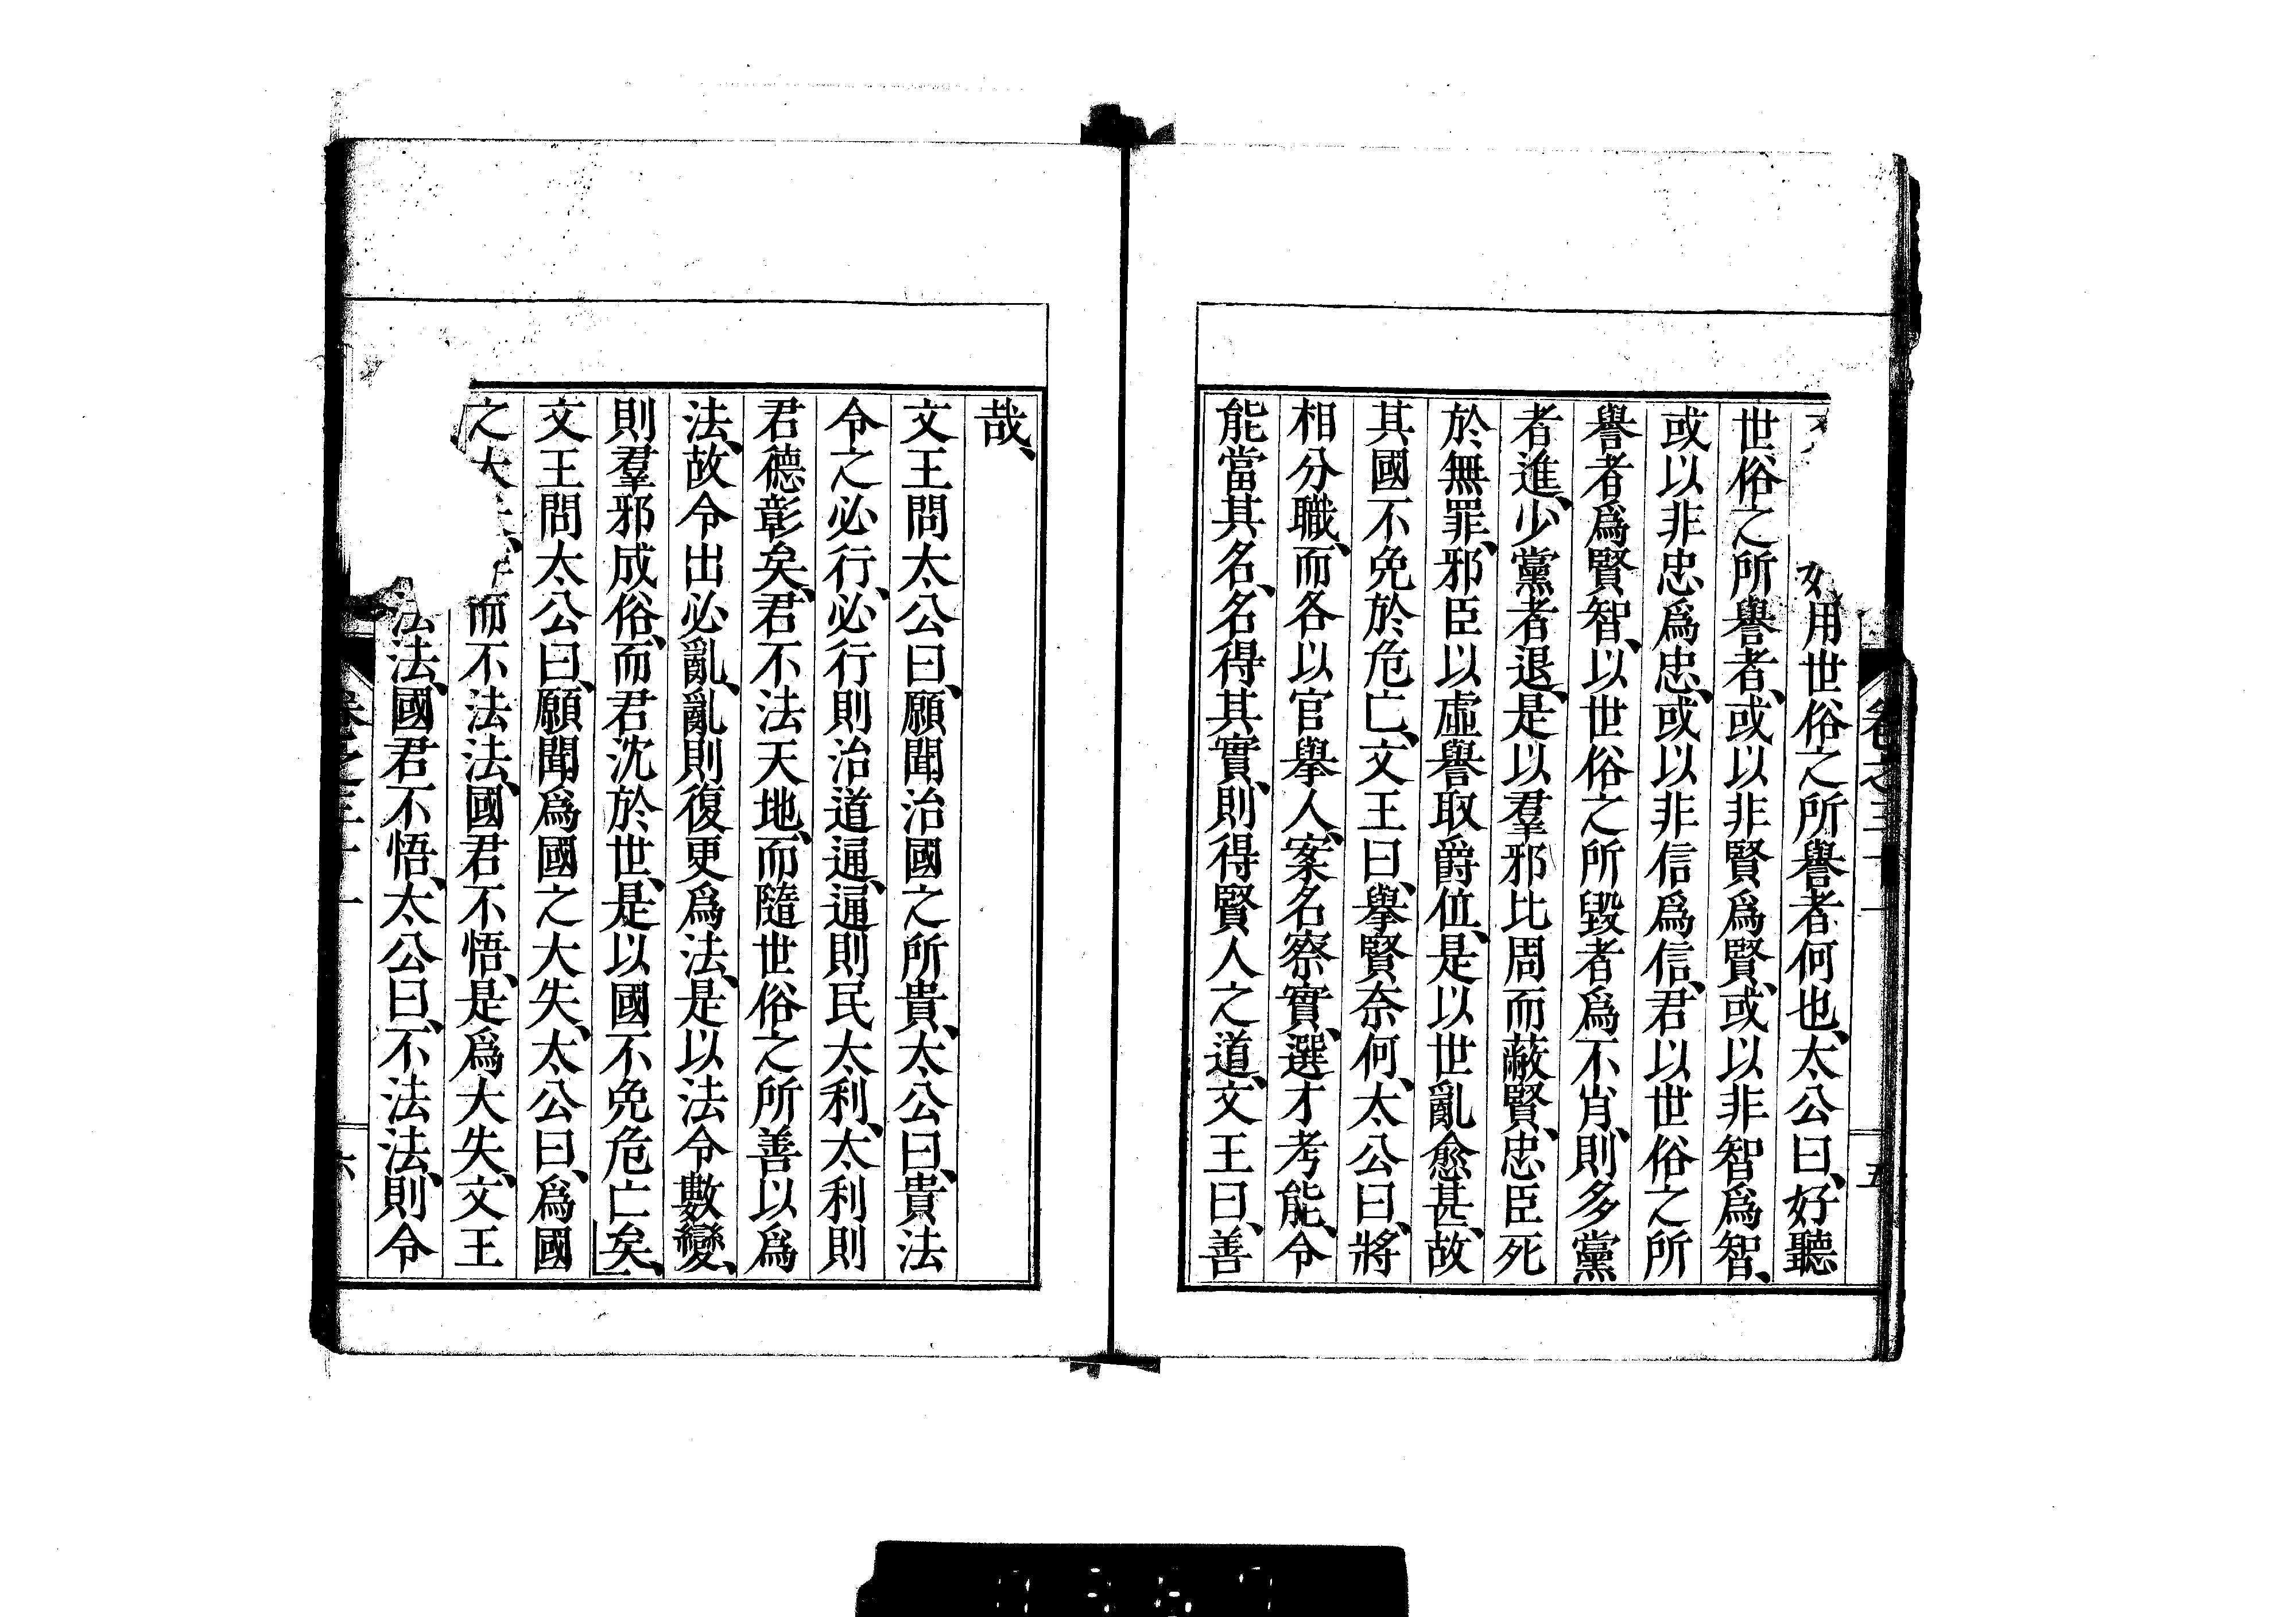 好用世俗之所譽者何也、太公曰、好聽
世俗之所譽者、或以非賢爲賢、或以非智爲智、
或以非忠爲忠、或以非信爲信、君以世俗之所
譽者爲賢智、以世俗之所毀者爲不肖、則多黨
者進、少黨者退、是以羣邪比周而蔽賢、忠臣死
於無罪、邪臣以虛譽取爵位、是以世亂愈甚、故
其國不免於危亡、文王曰、擧賢奈何、太公曰、將
相分職、而各以官擧人、案名察實、選才考能、令
能當其名、名得其實、則得賢人之道、文王曰、善
哉、
文王問太公曰、願聞治國之所貴、太公曰、貴法
令之必行、必行則治道通、通則民太利、太利則
君德彰矣、君不法天地、而隨世俗之所善以爲
法、故令出必亂、亂則復更爲法、是以法令數變、
則羣邪成俗、而君沈於世、是以國不免危亡矣、
文王問太公曰、願聞爲國之大失、太公曰、爲國
之大 而不法法、國君不悟、是爲大失、文王
法法、國君不悟、太公曰、不法法、則令
卷之三十一
五
卷之三十一
六